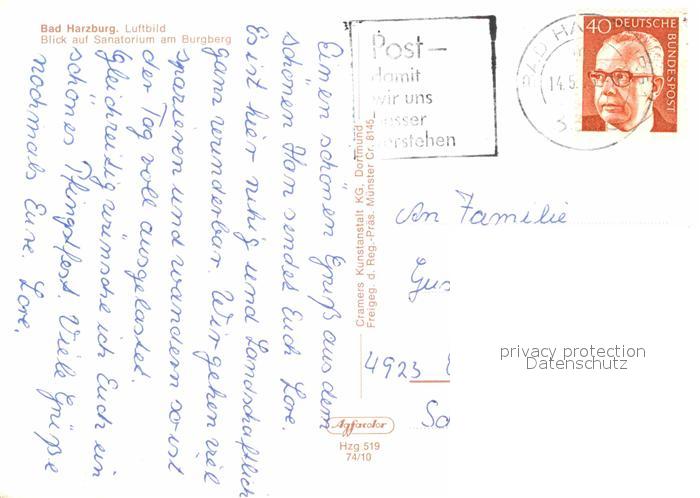 Bad Harzburg. Luftbild
Blick auf Sanatorium am Burgberg
Einen schönen Gruß aus dem
schönen Harz sendet Euch Lore.
Es ist hier ruhig und Landschaftlich
ganz wunderbar. Wir gehen viel
spazieren und wandern so ist
der Tag voll ausgelastet.
Gleichzeitig wünsche ich Euch ein
schönes Pfingstfest. Viele Grüße
nochmals Eure Lore.
Cramers Kunstanstalt KG. Dortmund
Freigeg. d. Reg.-Präs. Münster Cr. 8145
Agfacolor
Hzg 519
74/10
Post-
damit
wir uns
besser
verstehen
BAD HA
14.5.
40 DEUTSCHE
BUNDESPOST
An Familie
Gus
4923
privacy protection
Datenschutz